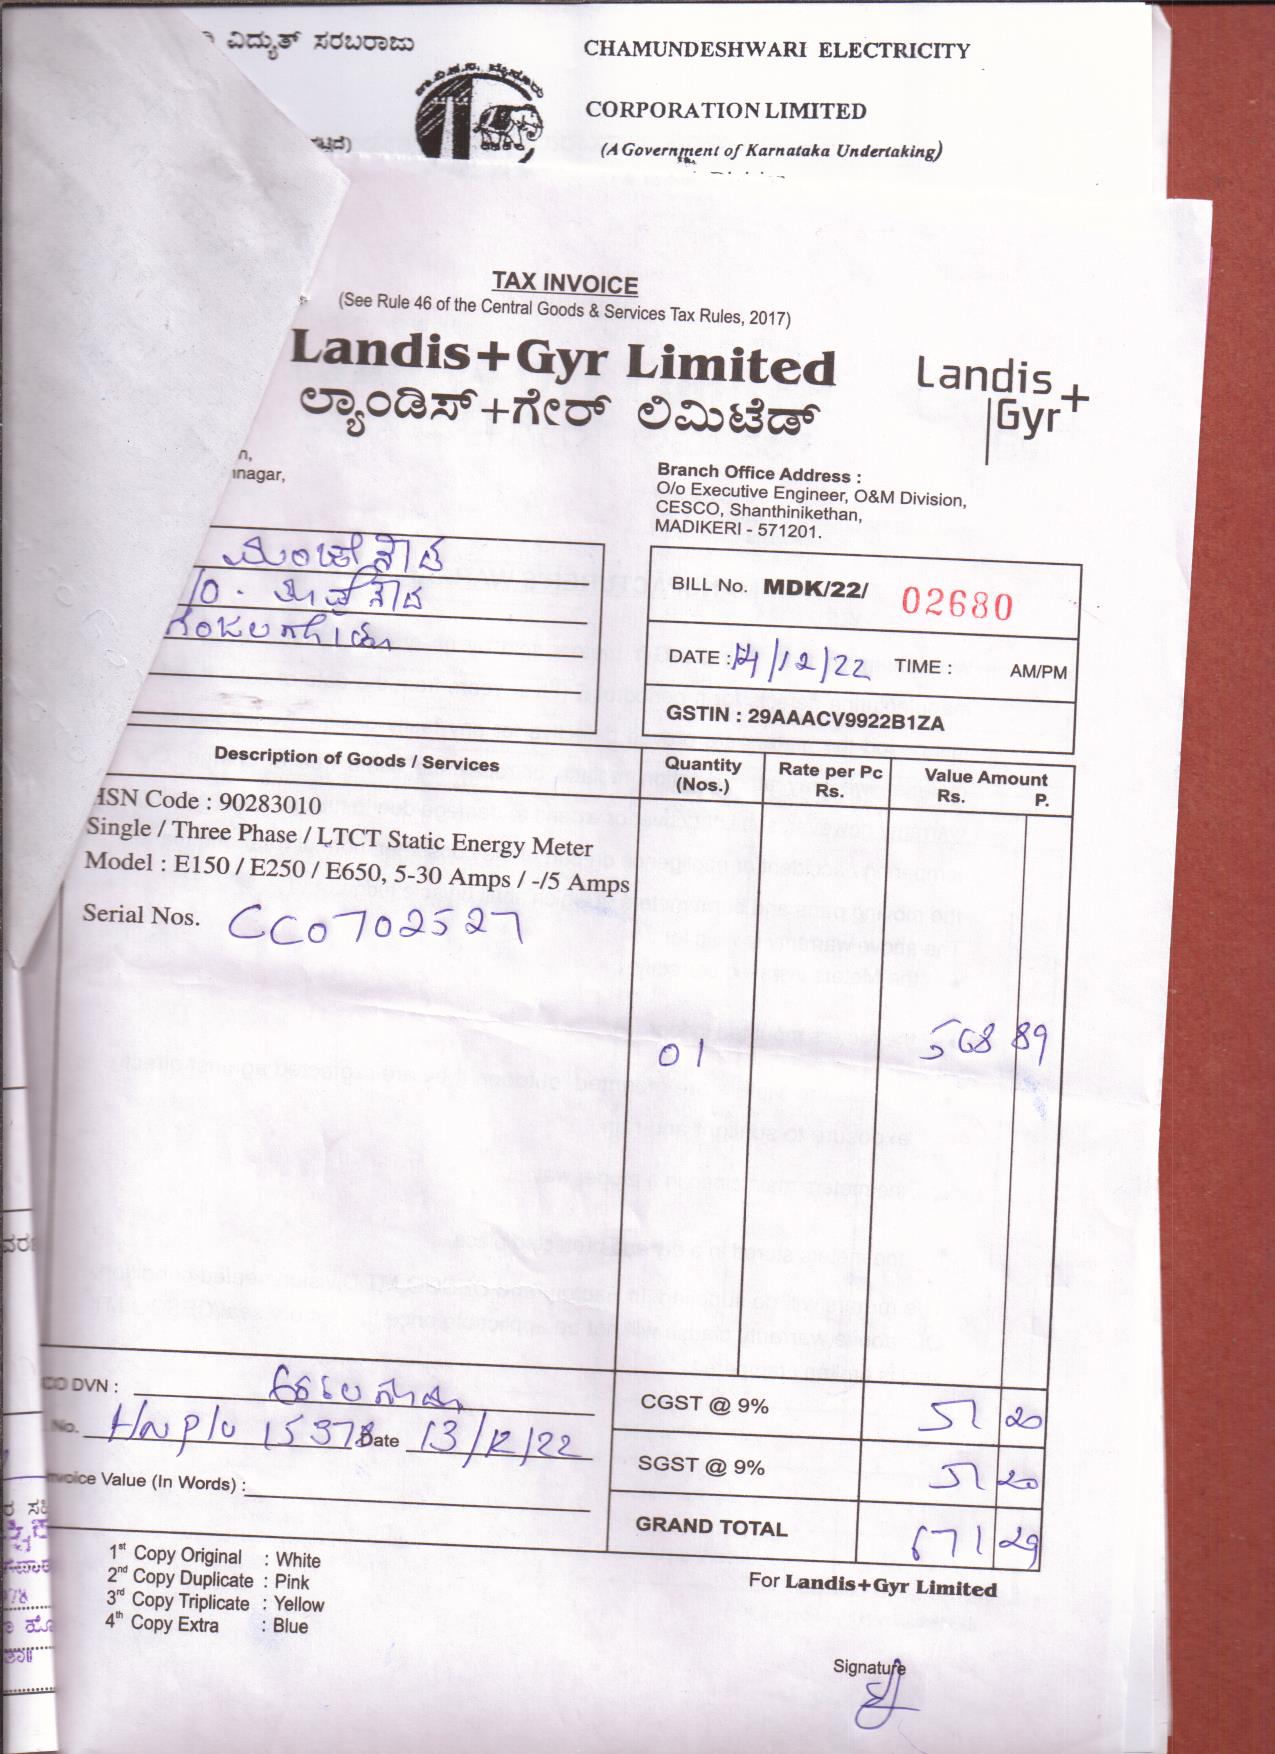 ವಿದ್ಯುತ್ ಸರಬರಾಜು
CHAMUNDESHWARI ELECTRICITY
CORPORATION LIMITED
(A Government of Karnataka Undertaking)
TAX INVOICE
(See Rule 46 of the Central Goods & Services Tax Rules, 2017)
Landis+Gyr Limited
ಲ್ಯಾಂಡಿಸ್+ಗೇರ್ ಲಿಮಿಟೆಡ್
Landis+
Gyr
Branch Office Address :
O/o Executive Engineer, O&M Division,
CESCO, Shanthinikethan,
MADIKERI - 571201.
BILL No. MDK/22/ 02680
DATE : /12/22 TIME : AM/PM
GSTIN : 29AAACV9922B1ZA
Description of Goods / Services
Quantity
(Nos.)
Rate per Pc
Rs.
Value Amount
Rs. P.
HSN Code : 90283010
Single / Three Phase / LTCT Static Energy Meter
Model : E150 / E250 / E650, 5-30 Amps / -/5 Amps
Serial Nos. CC0702527
01 568 89
DVN :
No. 15978 Date 13/12/22
Invoice Value (In Words) :
CGST @ 9% 51 20
SGST @ 9% 51 20
GRAND TOTAL 671 29
1st Copy Original : White
2nd Copy Duplicate : Pink
3rd Copy Triplicate : Yellow
4th Copy Extra : Blue
For Landis+Gyr Limited
Signature